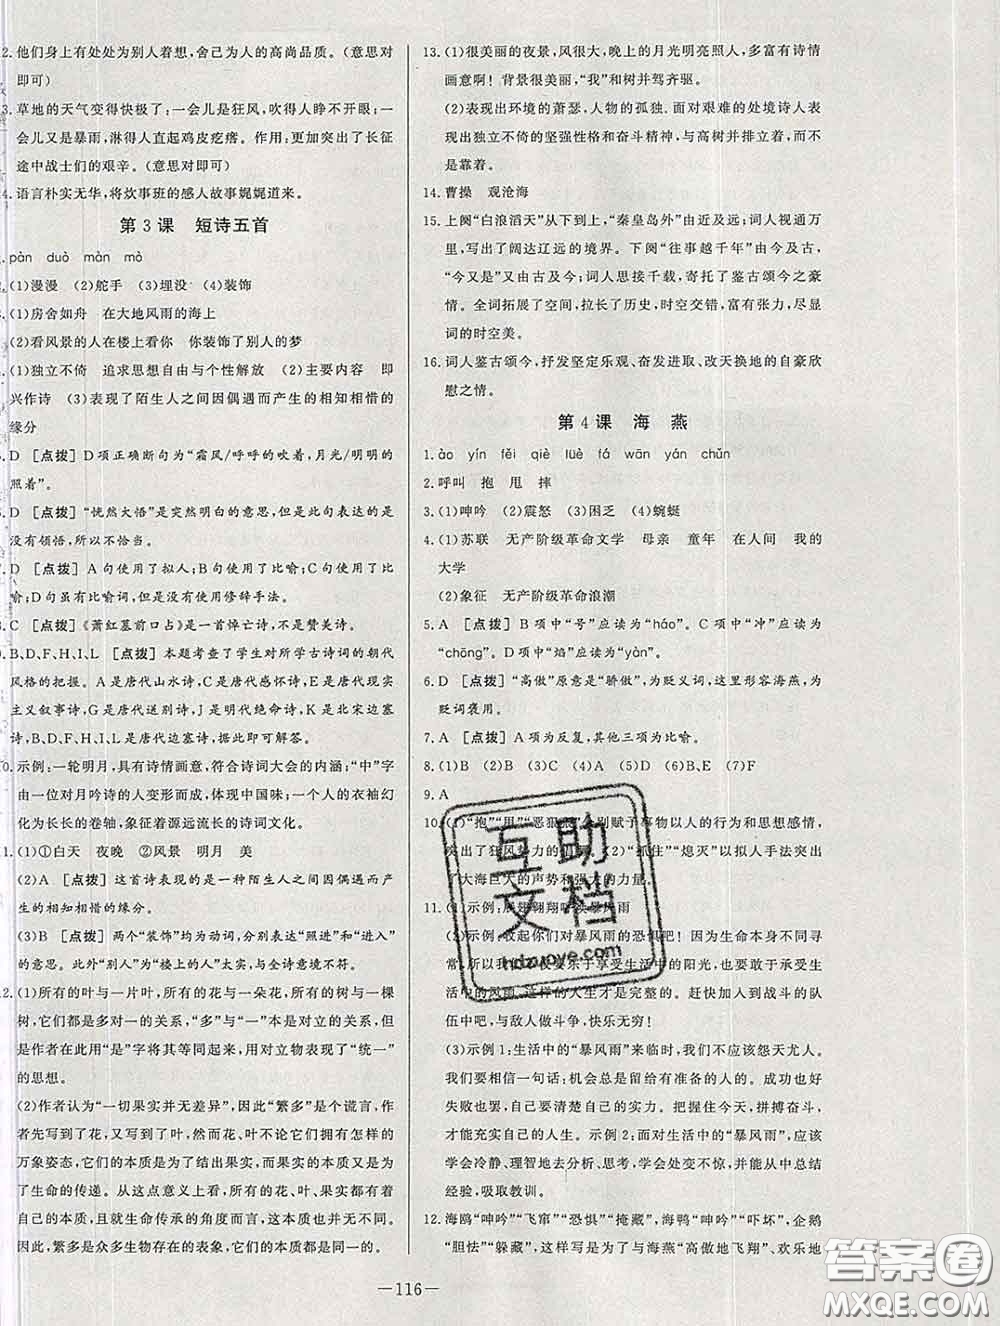 2. 他们身上有处处为别人着想,舍己为人的高尚品质。(意思对
即可)
3. 草地的天气变得快极了:一会儿是狂风,吹得人睁不开眼;一
会儿又是暴雨,淋得人直起鸡皮疙瘩。作用:更加突出了长征
途中战士们的艰辛。(意思对即可)
4. 语言朴实无华,将炊事班的感人故事娓娓道来。
第3课 短诗五首
pàn duò màn mò
(1)漫漫 (2)舵手 (3)埋没 (4)装饰
(1)房舍如舟 在大地风雨的海上
(2)看风景的人在楼上看你 你装饰了别人的梦
(1)独立不倚 追求思想自由与个性解放 (2)主要内容 即
兴作诗 (3)表现了陌生人之间因偶遇而产生的相知相惜的
缘分
D [点拨] D项正确断句为“霜风/呼呼的吹着,月光/明明的
照着”。
D [点拨] “恍然大悟”是突然明白的意思,但此句表达的是
没有领悟,所以不恰当。
D [点拨] A句使用了拟人;B句使用了比喻;C句使用了比
喻;D句虽有比喻词,但没有使用修辞手法。
C [点拨] 《萧红墓前口占》是一首悼亡诗,不是赞美诗。
B、D、F、H、I、L [点拨] 本题考查了学生对所学古诗词的朝代
风格的把握。A是唐代山水诗,C是唐代感怀诗,E是唐代现实
主义叙事诗,G是唐代送别诗,J是明代绝命诗,K是北宋边塞
诗,B、D、F、H、I、L是唐代边塞诗,据此即可解答。
0. 示例:一轮明月,具有诗情画意,符合诗词大会的内涵;“中”字
由一位对月吟诗的人变形而成,体现中国味;一个人的衣袖幻
化为长长的卷轴,象征着源远流长的诗词文化。
1. (1)①白天 夜晚 ②风景 明月 美
(2)A [点拨] 这首诗表现的是一种陌生人之间因偶遇而产
生的相知相惜的缘分。
(3)B [点拨] 两个“装饰”均为动词,分别表达“照进”和“进入”
的意思。此外“别人”为“楼上的人”太实,与全诗意境不符。
2. (1)所有的叶与一片叶,所有的花与一朵花,所有的树与一棵
树,它们都是多对一的关系,“多”与“一”本是对立的关系,但
是作者在此用“是”字将其等同起来,用对立物表现了“统一”
的思想。
(2)作者认为“一切果实并无差异”,因此“繁多”是个谎言,作
者先写到了花,又写到了叶,然而,花、叶不论其拥有怎样的
万象姿态,它们的本质是为了结出果实,而果实的本质则是为
了生命的传递。从这点意义上看,所有的花、叶、果实都有着
自己的本质,且就生命传承的角度而言,这些本质并无不同。
因此,繁多是众多生物存在的表象,它们的本质都是同一的。
13. (1)很美丽的夜景,风很大,晚上的月光明亮照人,多富有诗情
画意啊!背景很美丽,“我”和树并驾齐驱。
(2)表现出环境的萧瑟、人物的孤独。面对艰难的处境诗人表
现出独立不倚的坚强性格和奋斗精神,与高树并排立着,而不
是靠着。
14. 曹操 观沧海
15. 上阕“白浪滔天”从下到上,“秦皇岛外”由近及远;词人视通万
里,写出了阔达辽远的境界。下阕“往事越千年”由今及古,
“今又是”又由古及今;词人思接千载,寄托了鉴古颂今之豪
情。全词拓展了空间,拉长了历史,时空交错,富有张力,尽显
词的时空美。
16. 词人鉴古颂今,抒发坚定乐观、奋发进取、改天换地的自豪欣
慰之情。
第4课 海 燕
1. ào yín fěi qiè lüè fá wān yán chǔn
2. 呼叫 抱 甩 摔
3. (1)呻吟 (2)震怒 (3)困乏 (4)蜿蜒
4. (1)苏联 无产阶级革命文学 母亲 童年 在人间 我的
大学
(2)象征 无产阶级革命浪潮
5. A [点拨] B项中“号”应读为“háo”。C项中“冲”应读为
“chōng”。D项中“焰”应读为“yàn”。
6. D [点拨] “高傲”原意是“骄傲”,为贬义词,这里形容海燕,为
贬词褒用。
7. A [点拨] A项为反复,其他三项为比喻。
8. (1)B (2)B (3)C (4)A (5)D (6)B、E (7)F
9. A
10. (1)“抱”“甩”“恶狠狠”分别赋予事物以人的行为和思想感情,
突出了狂风势力的 (2)“抓住”“熄灭”以拟人手法突出了
大海巨大的声势和强大的力量。
11. (1)示例:展翅翱翔 暴风雨
(2)示例:收起你们对暴风雨的恐惧吧!因为生命本身不同寻
常,所以我们 乐于享受生活中的阳光,也要敢于承受生
活中的风雨,这样的人生才是完整的。赶快加入到战斗的队
伍中吧,与敌人做斗争,快乐无穷!
(3)示例1:生活中的“暴风雨”来临时,我们不应该怨天尤人。
我们要相信一句话:机会总是留给有准备的人。成功也好
失败也罢,只要我们尽到了自己的实力。把握住今天,拼搏奋斗,
才能充实自己的人生。示例2:面对生活中的“暴风雨”,应该
学会冷静、理智地去分析、思考,学会处变不惊,并能从中总结
经验,吸取教训。
12. 海鸥“呻吟”“飞窜”“恐惧”“掩藏”,海鸭“呻吟”“吓坏”,企鹅
“胆怯”“躲藏”,这样写是为了与海燕“高傲地飞翔”、欢乐地
—116—
互助
文档
hdzuoye.com
答案圈
MXQE.COM